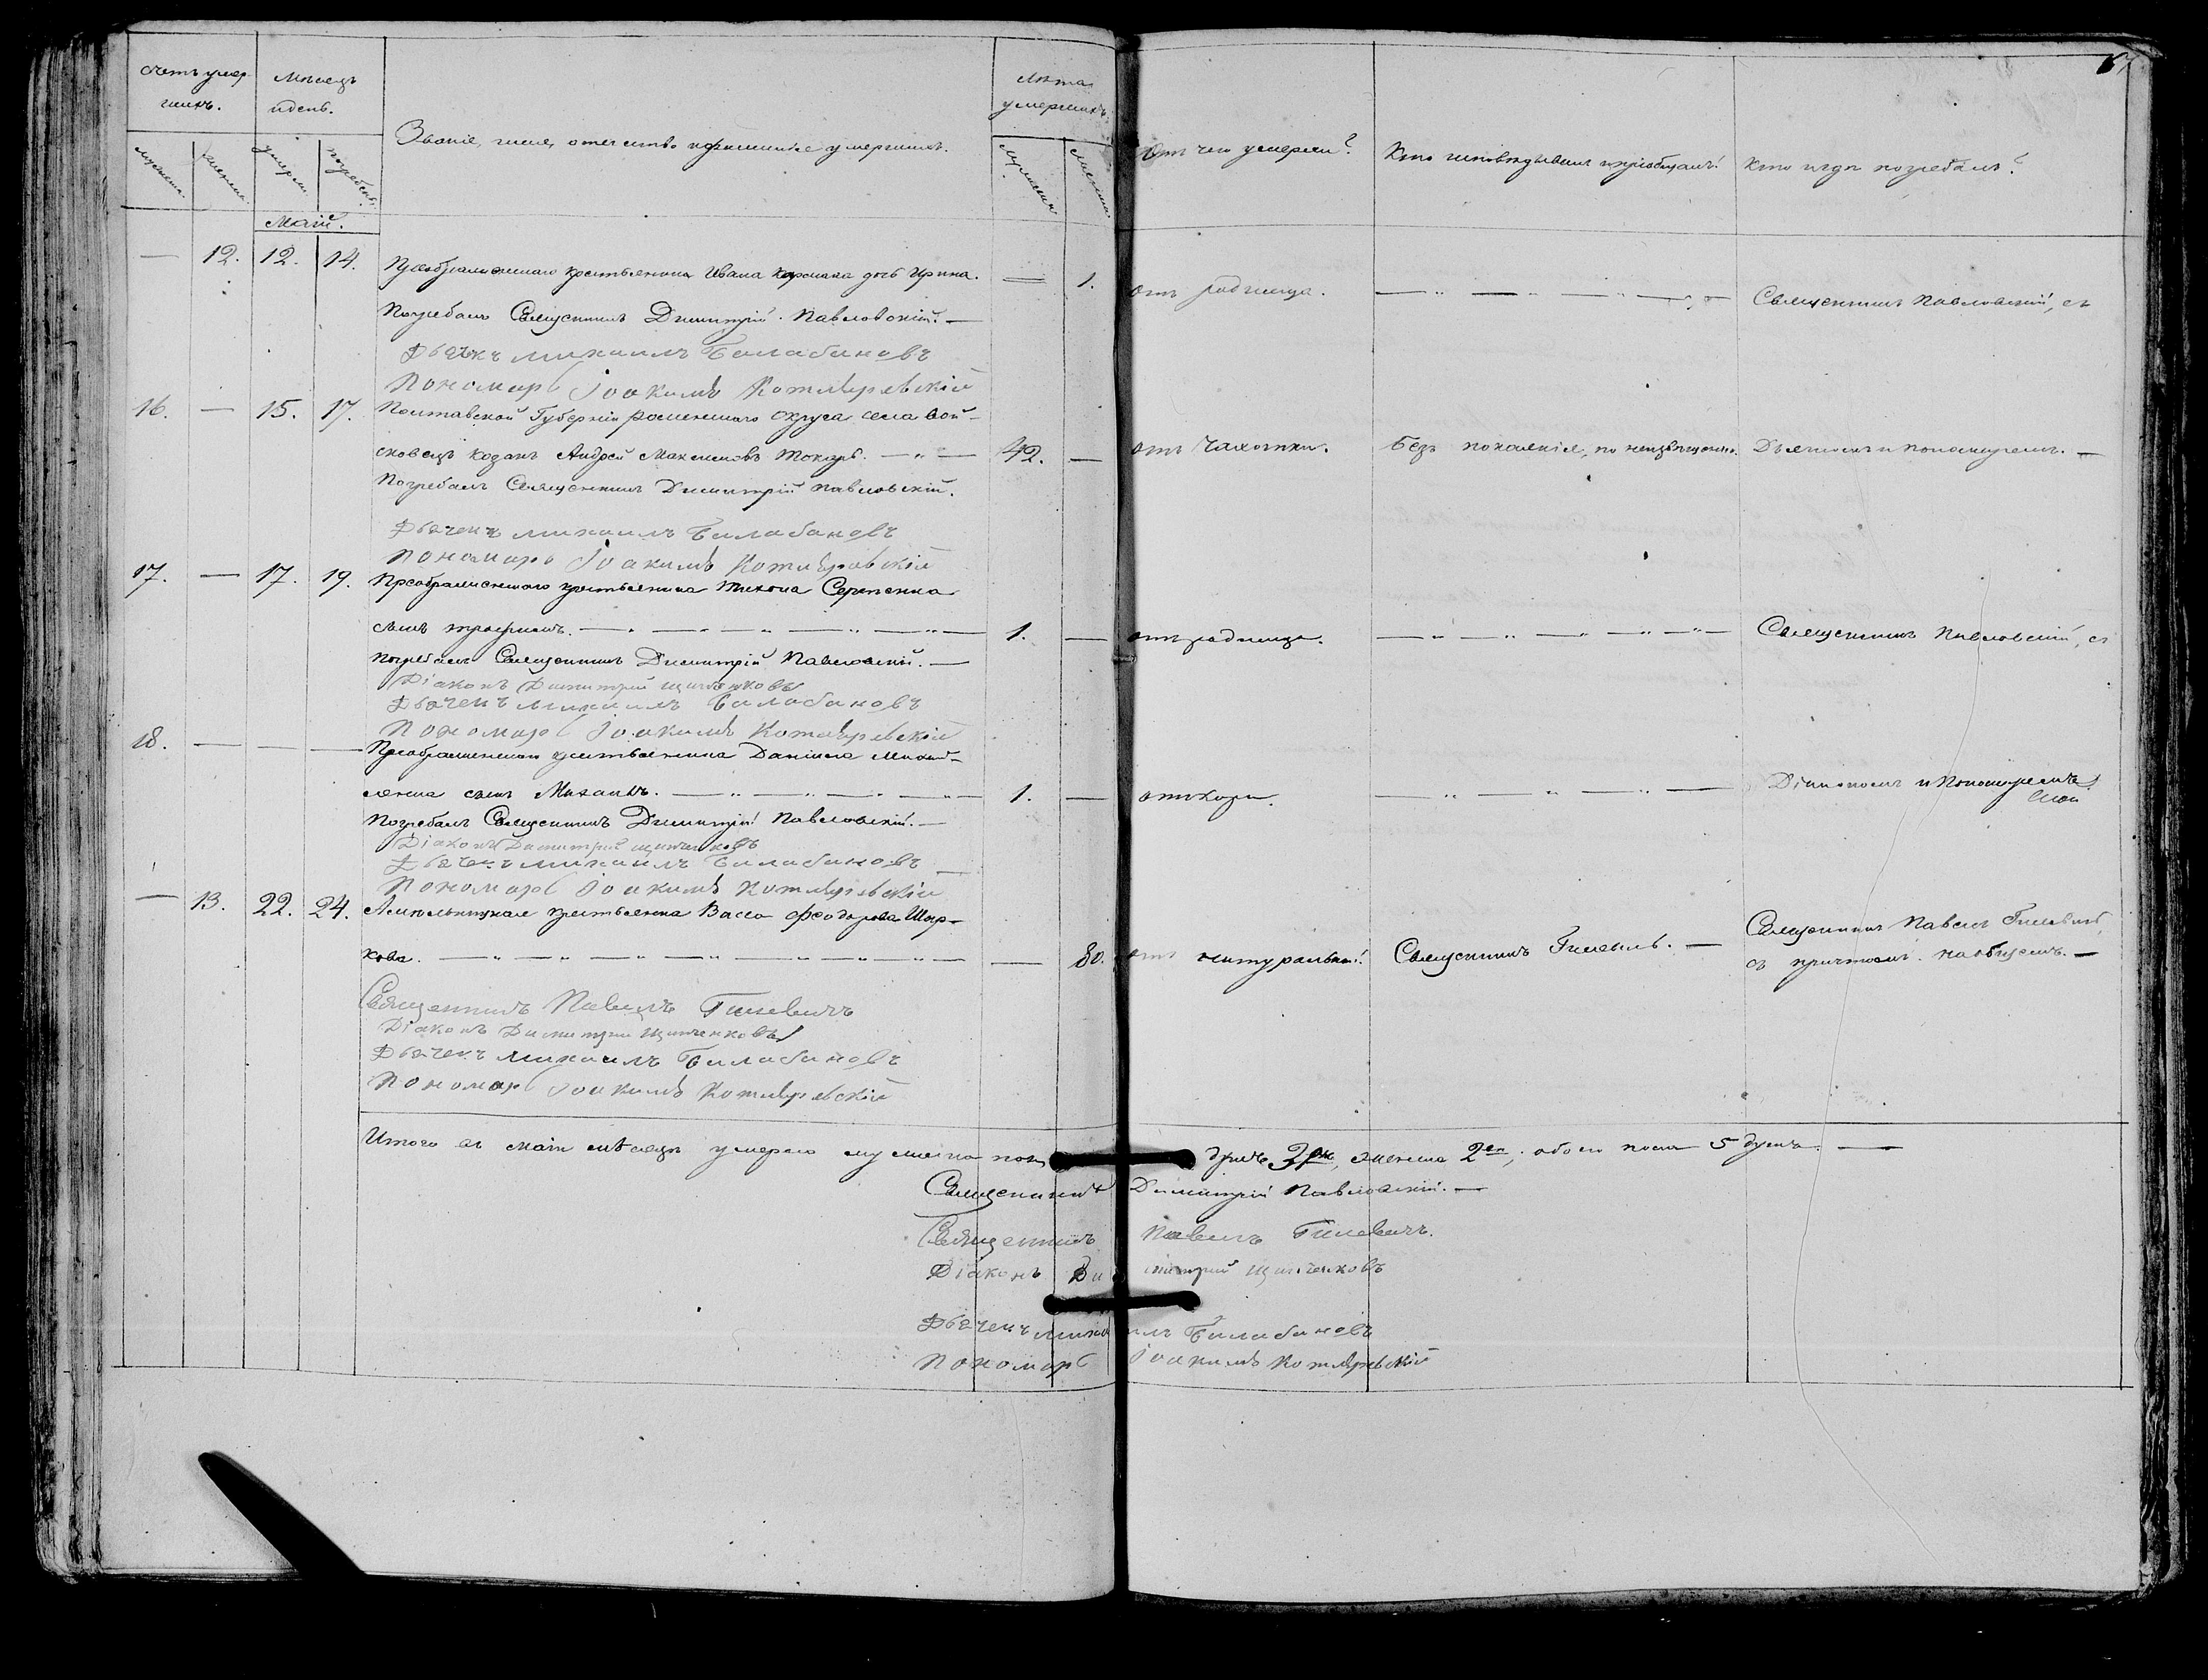 Счетъ умер-
шихъ.
Мѣсяцъ
и день.
Званіе, имя, отечество и фамиліе умершихъ.
Лѣта
умершихъ.
Отъ чего умерли?
Кто исповѣдывалъ и пріобщалъ?
Кто и гдѣ погребалъ?
67
мужеска.
женска.
умерли
погребены.
Мужеска
Женска
Маій.
— 12. 12. 14. Преображенскаго крестьянина Ивана дочь Ирина. — 1. отъ родимца. — Священникъ Павловскій, съ
Погребалъ Священникъ Димитрій Павловскій. —
Дьячекъ Михаилъ Балабановъ
Пономарь Іоакимъ Котляревскій
16. — 15. 17. Полтавской Губерніи Роменскаго округа села Вой-
ковецъ козакъ Андрей Максимовъ Токарь. — 42. — отъ чахотки. Безъ покаянія, по Дьячкомъ и пономаремъ. —
Погребалъ Священникъ Димитрій Павловскій.
Дьячекъ Михаилъ Балабановъ
Пономарь Іоакимъ Котляревскій
17. — 17. 19. Преображенскаго крестьянина Тихона Сергіенка
сынъ Трофимъ. — 1. — отъ родимца. — Священникъ Павловскій, съ
Погребалъ Священникъ Димитрій Павловскій. —
Діаконъ Димитрій Щитченковъ
Дьячекъ Михаилъ Балабановъ
Пономарь Іоакимъ Котляревскій
18. — — — Преображенскаго крестьянина Даніила Михай-
ленка сынъ Михаилъ. — 1. — отъ кори. — Діакономъ и Пономаремъ
Погребалъ Священникъ Димитрій Павловскій. —
Діаконъ Димитрій Щитченковъ
Дьячекъ Михаилъ Балабановъ
Пономарь Іоакимъ Котляревскій
— 13. 22. 24. крестьянка Васса Феодорова Шар-
кова. — 80. отъ натуральной. Священникъ Гилевичъ. — Священникъ Павелъ Гилевичъ,
съ причтомъ на общемъ. —
Священникъ Павелъ Гилевичъ
Діаконъ Димитрій Щитченковъ
Дьячекъ Михаилъ Балабановъ
Пономарь Іоакимъ Котляревскій
Итого въ маіи мѣсяцѣ умерло мужеска пола душъ 3ри, женска 2ѣ; обоего пола 5 душъ. —
Священникъ Димитрій Павловскій. —
Священникъ Павелъ Гилевичъ.
Діаконъ Димитрій Щитченковъ
Дьячекъ Михаилъ Балабановъ
Пономарь Іоакимъ Котляревскій